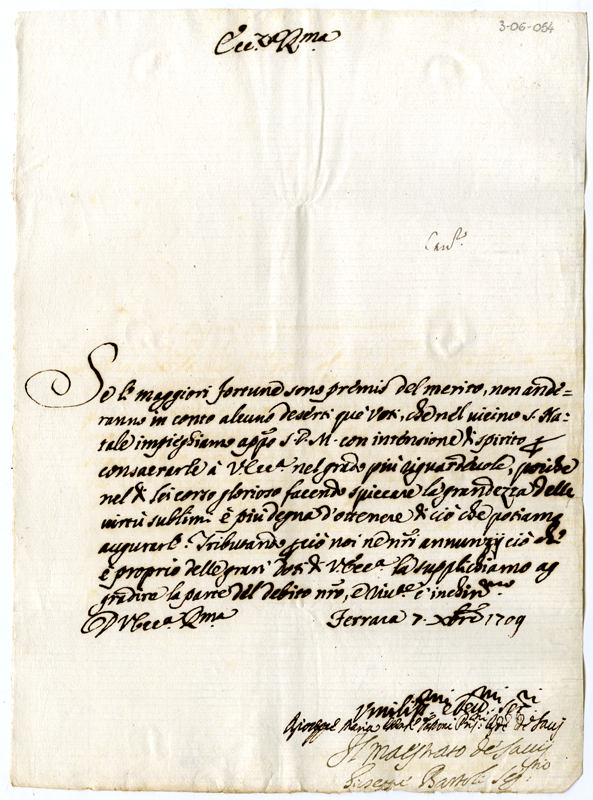 3-06-054
Ecc.za R.ma
Se le maggiori fortune sono premio del merito, non ande=
ranno in conto alcuno deserti que' Voti, che nel vicino S. Na:
tale impieghiamo app.o S. D. M. con intensione di spirito p
consacrarle à V. Ecc.a nel grado più riguardevole, poiche
nel di lei corso glorioso facendo spiccare la grandezza delle
virtù sublimi è più degna d'ottenere di ciò che potiamo
augurarle. Tributando pciò noi ne nri annunzij ciò ch'
è proprio delle gran Doti di V. Ecc.a la supplichiamo ag
gradire la parte del debito nro, e
D V. Ecc.a R.ma Ferrara 7. Xbre 1709
Umiliss.mi e Ser.ri
Giuseppe Maria de Savij
Il Magistrato de Savij
Giuseppe Bartoli Seg.rio